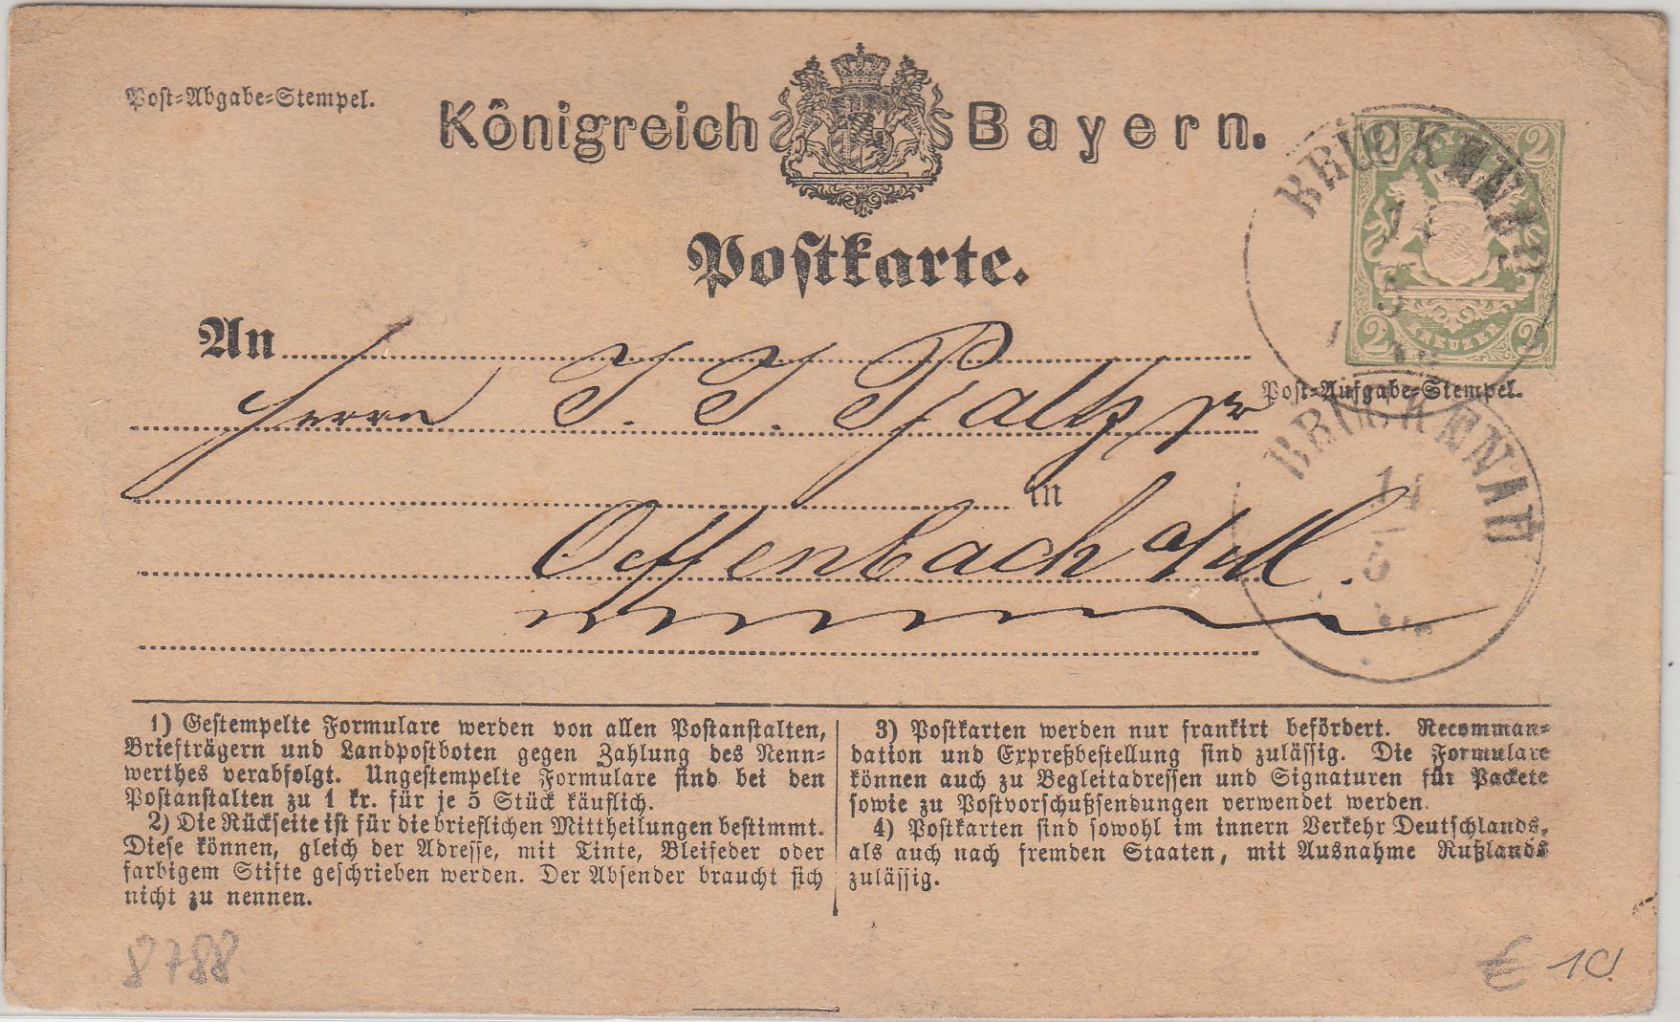 Post-Abgabe-Stempel.
Königreich Bayern.
Postkarte.
2 2
KREUZER
2 2
BRÜCKENAU
An
Herrn J. J. Pfaltz jr
Post-Aufgabe-Stempel.
BRÜCKENAU
14
5
in
Offenbach a/M.
1) Gestempelte Formulare werden von allen Postanstalten,
Briefträgern und Landpostboten gegen Zahlung des Nenn-
werthes verabfolgt. Ungestempelte Formulare sind bei den
Postanstalten zu 1 kr. für je 5 Stück käuflich.
2) Die Rückseite ist für die brieflichen Mittheilungen bestimmt.
Diese können, gleich der Adresse, mit Tinte, Bleifeder oder
farbigem Stifte geschrieben werden. Der Absender braucht sich
nicht zu nennen.
3) Postkarten werden nur frankirt befördert. Recomman-
dation und Expreßbestellung sind zulässig. Die Formulare
können auch zu Begleitadressen und Signaturen für Packete
sowie zu Postvorschußsendungen verwendet werden.
4) Postkarten sind sowohl im innern Verkehr Deutschlands,
als auch nach fremden Staaten, mit Ausnahme Rußlands
zulässig.
8788
€ 10